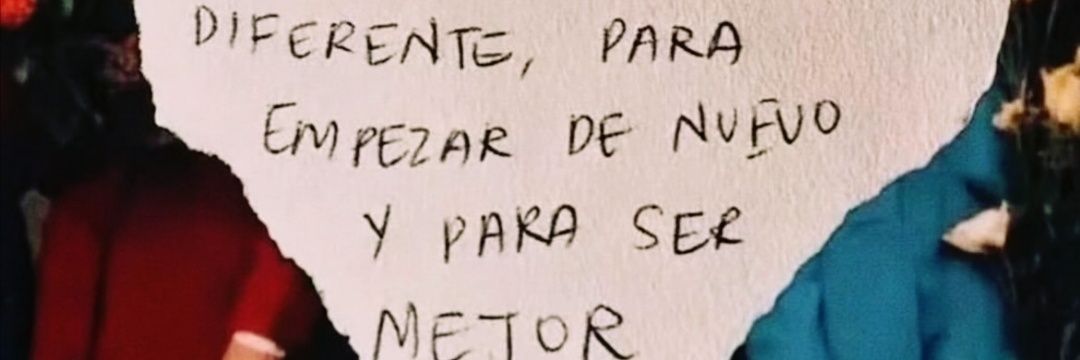 DIFERENTE, PARA
EMPEZAR DE NUEVO
Y PARA SER
MEJOR